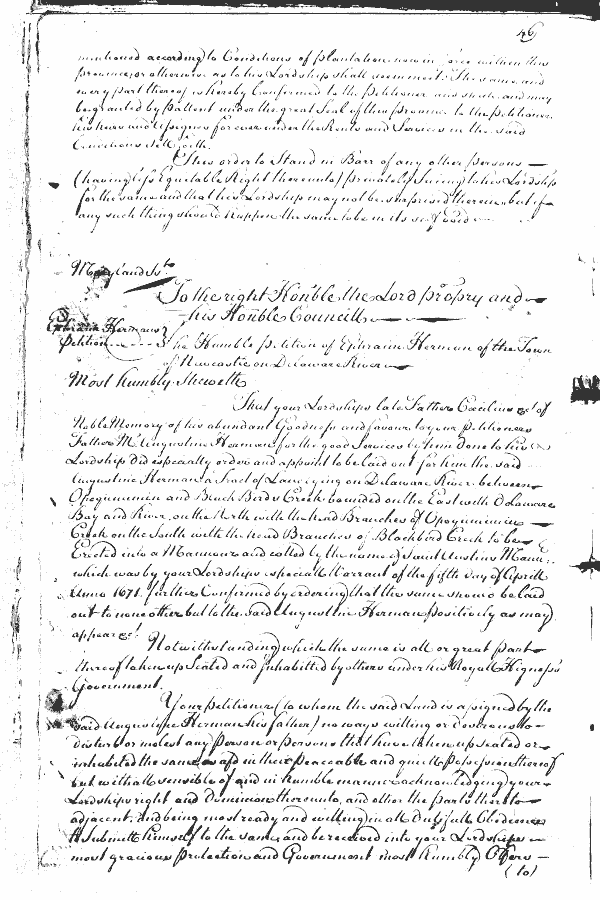 46
mentioned according to Conditions of plantation now in force within this
province or otherwise as to his Lordship shall seem meet. The same and
every part thereof is hereby Confirmed to the petitioner and shall and may
be granted by pattent under the great Seal of this province to the petitioner
his heirs and assignes for ever under the Rents and Services in the said
Conditions sett forth.
This order to Stand in Barr of any other persons
(having less Equitable Right thereunto) privately Suing to his Lordship
for the same and that his Lordship may not be surprised therein but if
any such thing should happen the same to be in its self void
Maryland Ss
To the right Honble the Lord propry and
his Honble Councill
Ephraim Hermans
petition
The Humble petition of Ephraim Herman of the Town
of Newcastle on Delaware River
Most humbly Sheweth
That your Lordships late Father Cecilius of
Noble Memory of his abundant Goodness and favour to your petitioners
Father Mr. Augustine Herman for the good Services by him done to his
Lordship did especially order and appoint to be laid out for him the said
Augustine Herman a Tract of Land lying on Delaware River between
Opoquimimin and Black Birds Creek bounded on the East with Delaware
Bay and River, on the North with the head Branches of Opoquiminin
Creek on the South with the head Branches of Blackbird Creek to be
Erected into a Mannour and called by the name of Saint Austins Mann:
which was by your Lordships especiall Warrant of the fifth day of Aprill
Anno 1671. further Confirmed by ordering that the same should be laid
out to none other but to the said Augustine Herman positively as may
appear
Notwithstanding which the same is all or great part
thereof taken up Seated and Inhabitted by others under his Royall Highness's
Government.
Your petitioner (to whom the said Land is assigned by the
said Augustine Herman his father) no ways willing or desireous to
disturb or molest any person or persons that have taken up seated or
inhabited the same as afd in their peaceable and quiett possession thereof
but withall sensible of and in humble manner acknowledging your
Lordships right and Dominion thereunto, and other the parts thereto
adjacent. And being most ready and willing in all Dutifull Obedience
to Submitt himself to the same and be received into your Lordships
most gracious protection and Government most humbly Offers
(to)